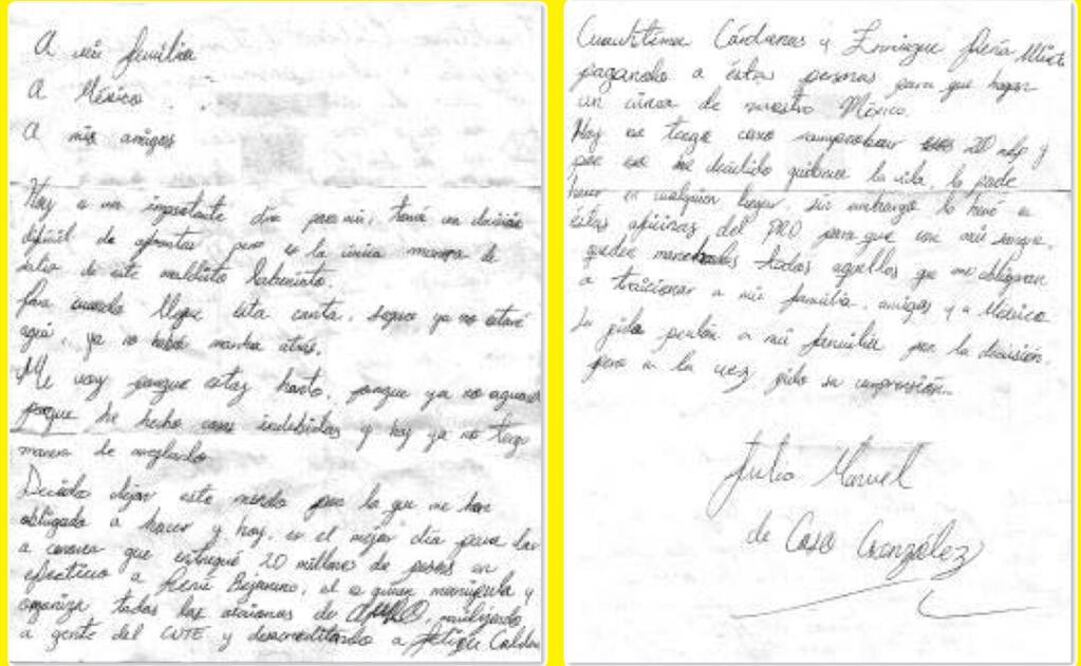 A mi familia
A México.
A mis amigos
Hoy es un importante día para mi, tomé una decisión
difícil de afrontar pero es la única manera de
salir de este maldito laberinto.
Para cuando llegue esta carta, seguro ya no estaré
aquí, ya no habrá marcha atrás.
Me voy porque estoy harto, porque ya no aguanto
porque he hecho cosas indebidas y hoy ya no tengo
manera de arreglarlo
Decido dejar este mundo por lo que me han
obligado a hacer y hoy, es el mejor día para dar
a conocer que entregué 20 millones de pesos en
efectivo a René Bejarano, el a quien manipula y
organiza todas las acciones de AMLO, movilizando
a gente del CNTE y desacreditando a Felipe Calderón
Cuauhtémoc Cárdenas y Enrique Peña Nieto
pagando a éstas personas para que hagan
un circo de nuestro México.
Hoy no tengo como comprobar esos 20 mdp y
por eso he decidido quitarme la vida, lo pude
hacer en cualquier lugar, sin embargo lo haré en
estas oficinas del PRD para que con mi sangre,
queden manchados todos aquellos que me obligaron
a traicionar a mi familia, amigos y a México
Le pido perdón a mi familia por la decisión,
pero a la vez pido su comprensión.
Julio Manuel
de Caso González